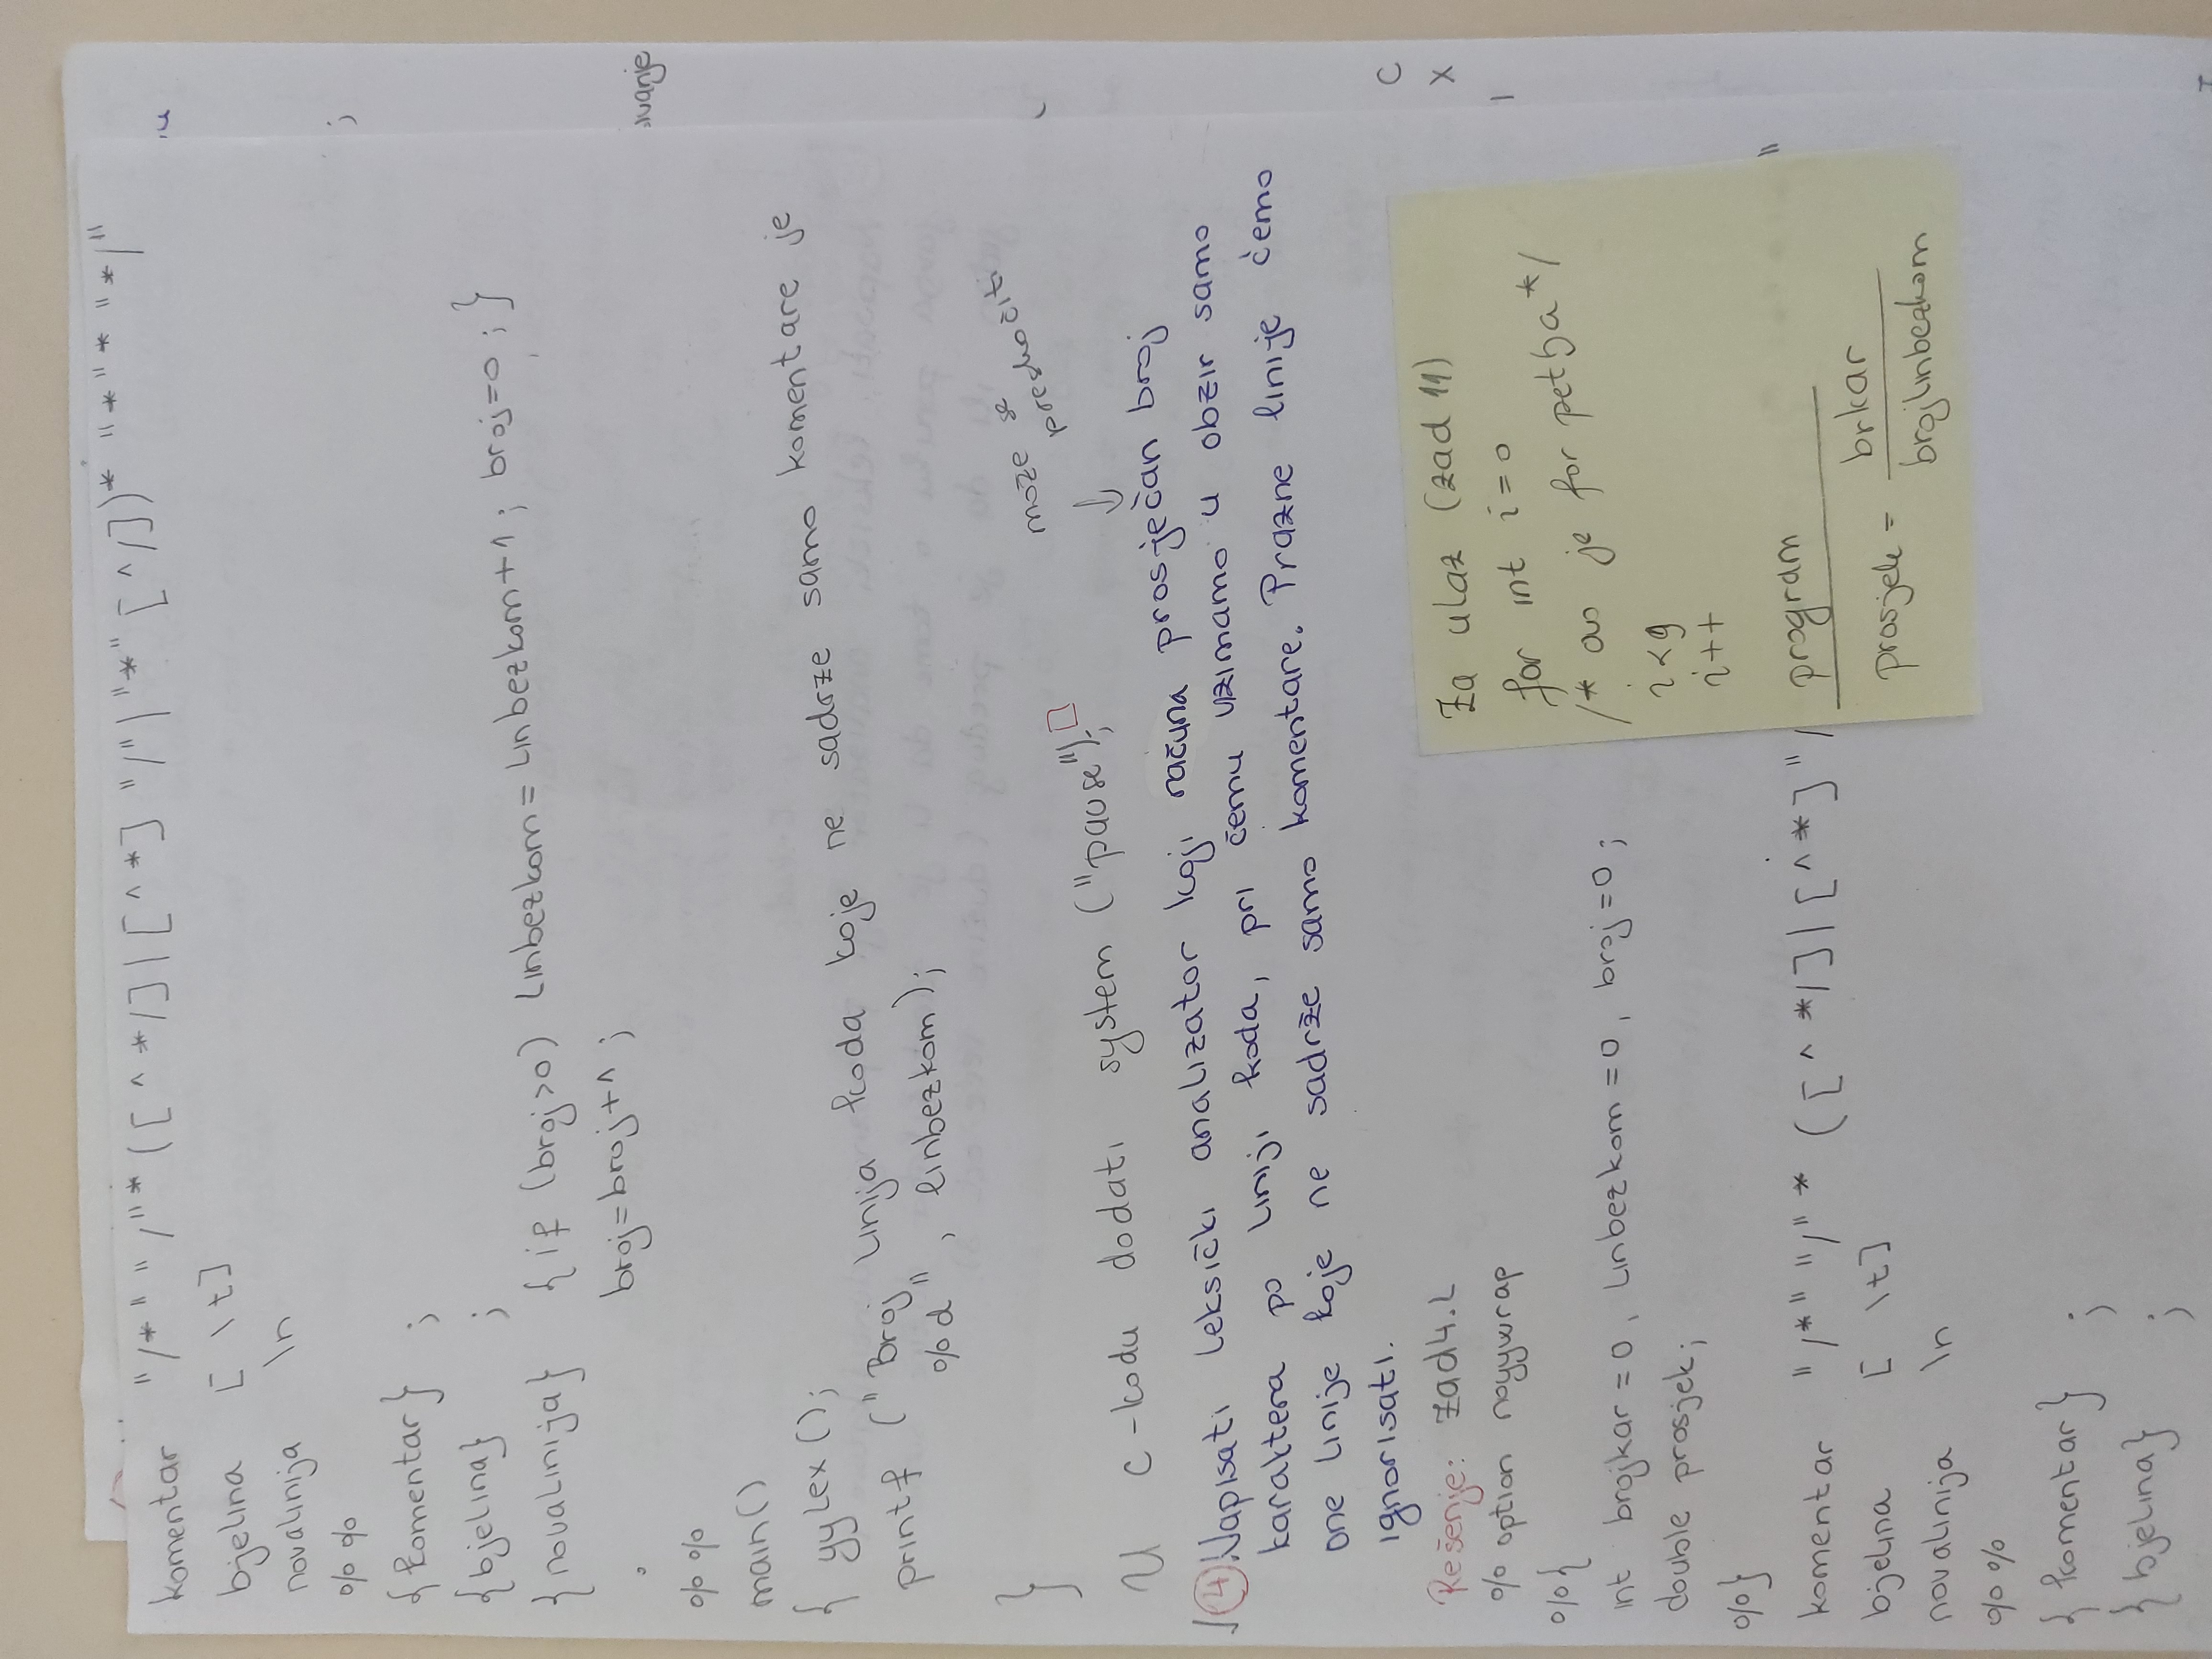 komentar "/*" "/"* ([^*/]|[^*] "/"|"*" [^/])* "*"* "*/"
bjelina [ \t]
novalinija \n
%%
{komentar} ;
{bjelina} ;
{novalinija} {if (broj>0) linbezkom = linbezkom+1; broj=0;}
. broj=broj+1;
%%
main()
{ yylex();
printf ("Broj linija koda koje ne sadrže samo komentare je
%d", linbezkom);
}
može se
preskočiti
↓
U C-kodu dodati system ("pause");
√ 4. Napisati leksički analizator koji računa prosječan broj
karaktera po liniji koda, pri čemu uzimamo u obzir samo
one linije koje ne sadrže samo komentare. Prazne linije ćemo
ignorisati.
Rešenje: zad4.l
% option noyywrap
%{
int brojkar = 0, linbezkom = 0, broj=0;
double prosjek;
%}
komentar "/*" "/"* ([^*/]|[^*] "/ "
bjelina [ \t]
novalinija \n
%%
{komentar} ;
{bjelina} ;
Za ulaz (zad 11)
for int i=0
/* ovo je for petlja */
i<9
i++
program
prosjek = brkar
brojlinbezkom
;
ivanje
C
X